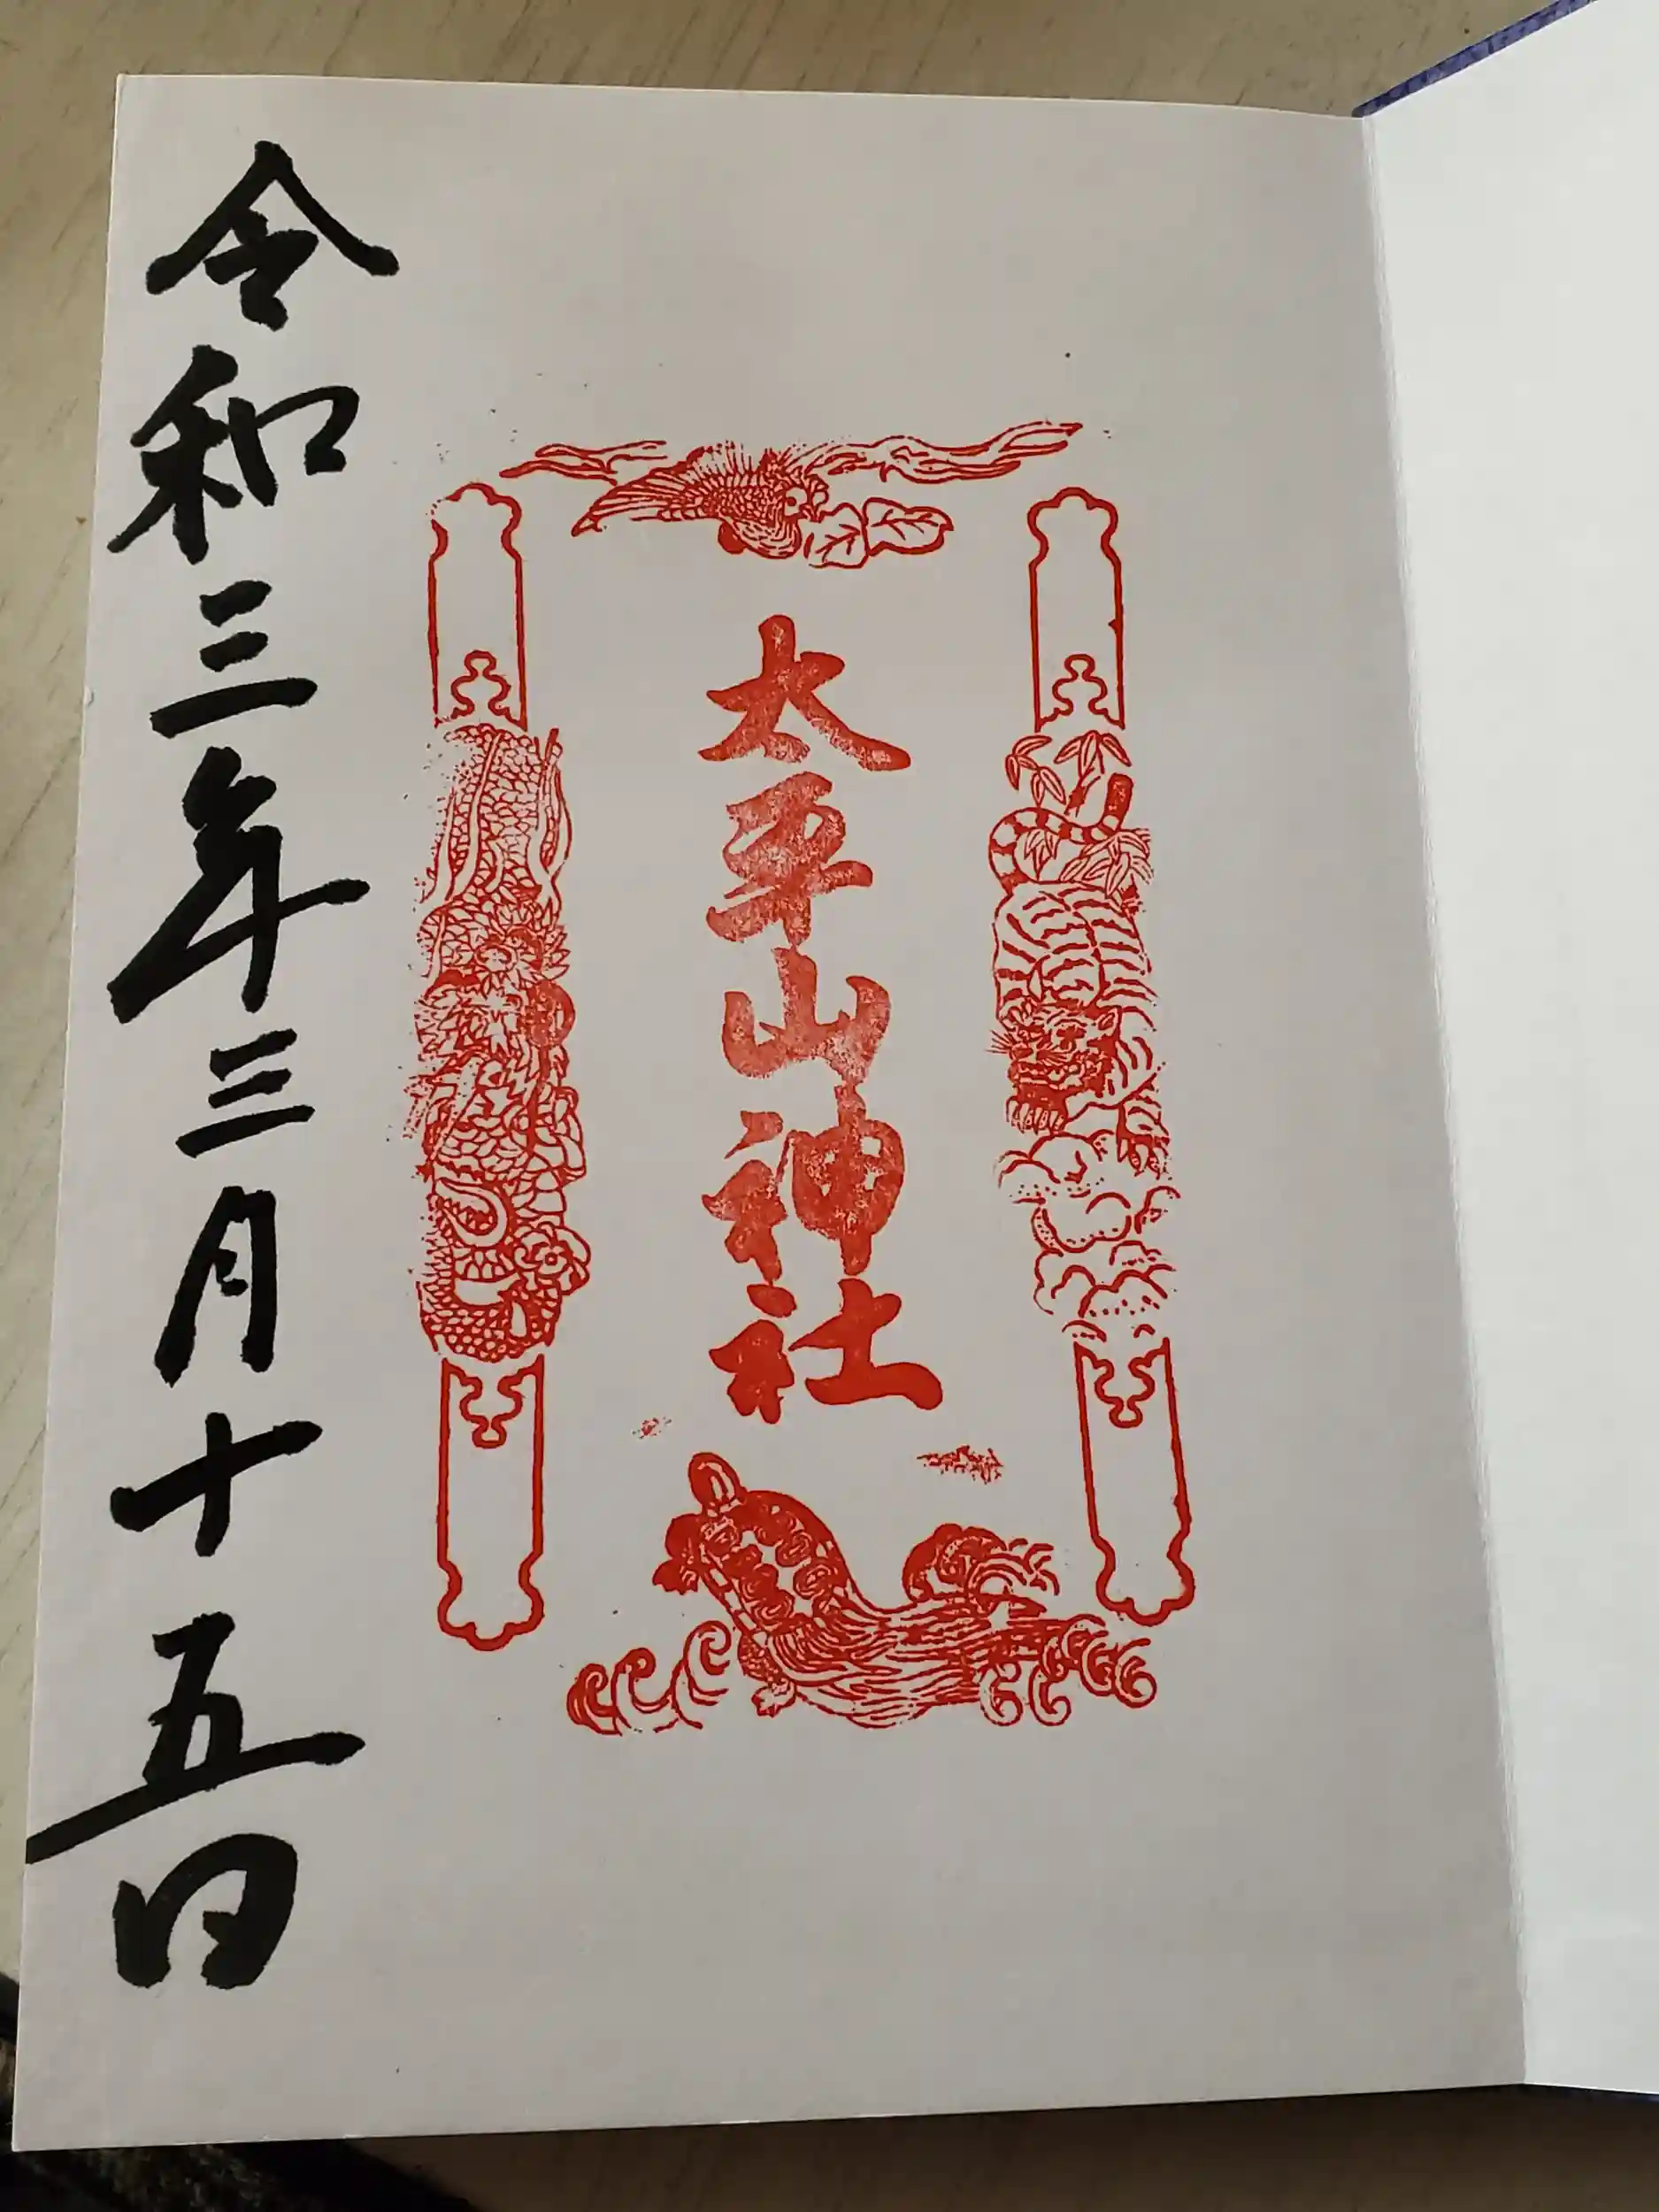 太平山神社
令和三年三月十五日